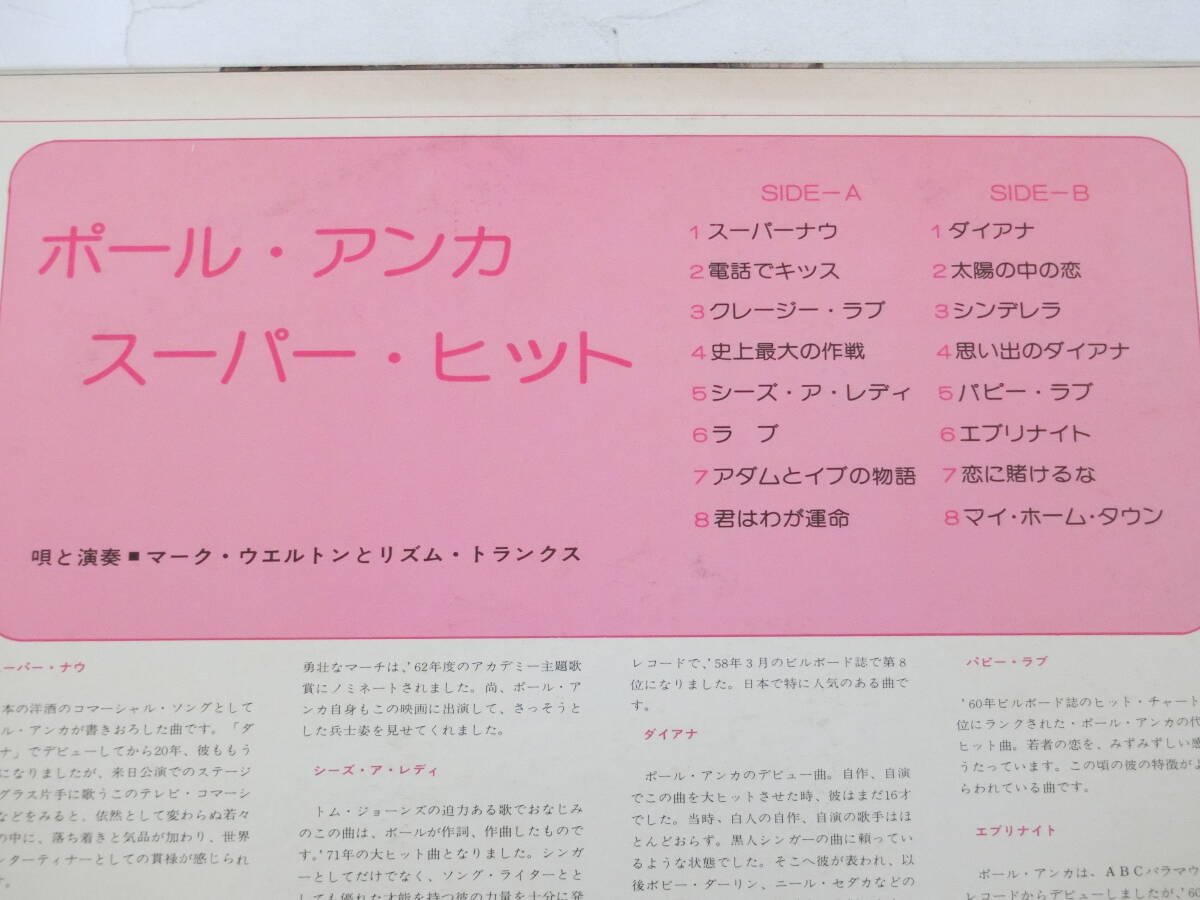 ポール・アンカ
スーパー・ヒット
唄と演奏■マーク・ウエルトンとリズム・トランクス
SIDE－A
1 スーパーナウ
2 電話でキッス
3 クレージー・ラブ
4 史上最大の作戦
5 シーズ・ア・レディ
6 ラ　ブ
7 アダムとイブの物語
8 君はわが運命
SIDE－B
1 ダイアナ
2 太陽の中の恋
3 シンデレラ
4 思い出のダイアナ
5 パピー・ラブ
6 エブリナイト
7 恋に賭けるな
8 マイ・ホーム・タウン
ーパー・ナウ
本の洋酒のコマーシャル・ソングとして
ル・アンカが書きおろした曲です。「ダ
ナ」でデビューしてから20年、彼ももう
になりましたが、来日公演でのステージ
グラス片手に歌うこのテレビ・コマーシ
などをみると、依然として変わらぬ若々
の中に、落ち着きと気品が加わり、世界
ンターティナーとしての貫禄が感じられ
す。
勇壮なマーチは、'62年度のアカデミー主題歌
賞にノミネートされました。尚、ポール・ア
ンカ自身もこの映画に出演して、さっそうと
した兵士姿を見せてくれました。
シーズ・ア・レディ
トム・ジョーンズの迫力ある歌でおなじみ
のこの曲は、ポールが作詞、作曲したもので
す。'71年の大ヒット曲となりました。シンガ
ーとしてだけでなく、ソング・ライターとと
しても優れた才能を持つ彼の力量を十分に発
レコードで、'58年3月のビルボード誌で第8
位になりました。日本で特に人気のある曲で
す。
ダイアナ
ポール・アンカのデビュー曲。自作、自演
でこの曲を大ヒットさせた時、彼はまだ16才
でした。当時、白人の自作、自演の歌手はほ
とんどおらず。黒人シンガーの曲に頼ってい
るような状態でした。そこへ彼が表われ、以
後ボビー・ダーリン、ニール・セダカなどの
パピー・ラブ
'60年ビルボード誌のヒット・チャート
位にランクされた・ポール・アンカの代
ヒット曲。若者の恋を、みずみずしい感
うたっています。この頃の彼の特徴がよ
らわれている曲です。
エブリナイト
ポール・アンカは、ABCパラマウ
レコードからデビューしましたが、'60